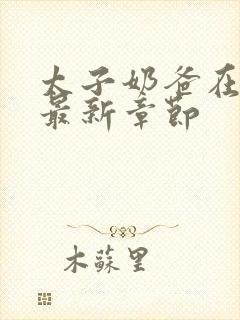 太子奶爸在
最新章节
木蘇里